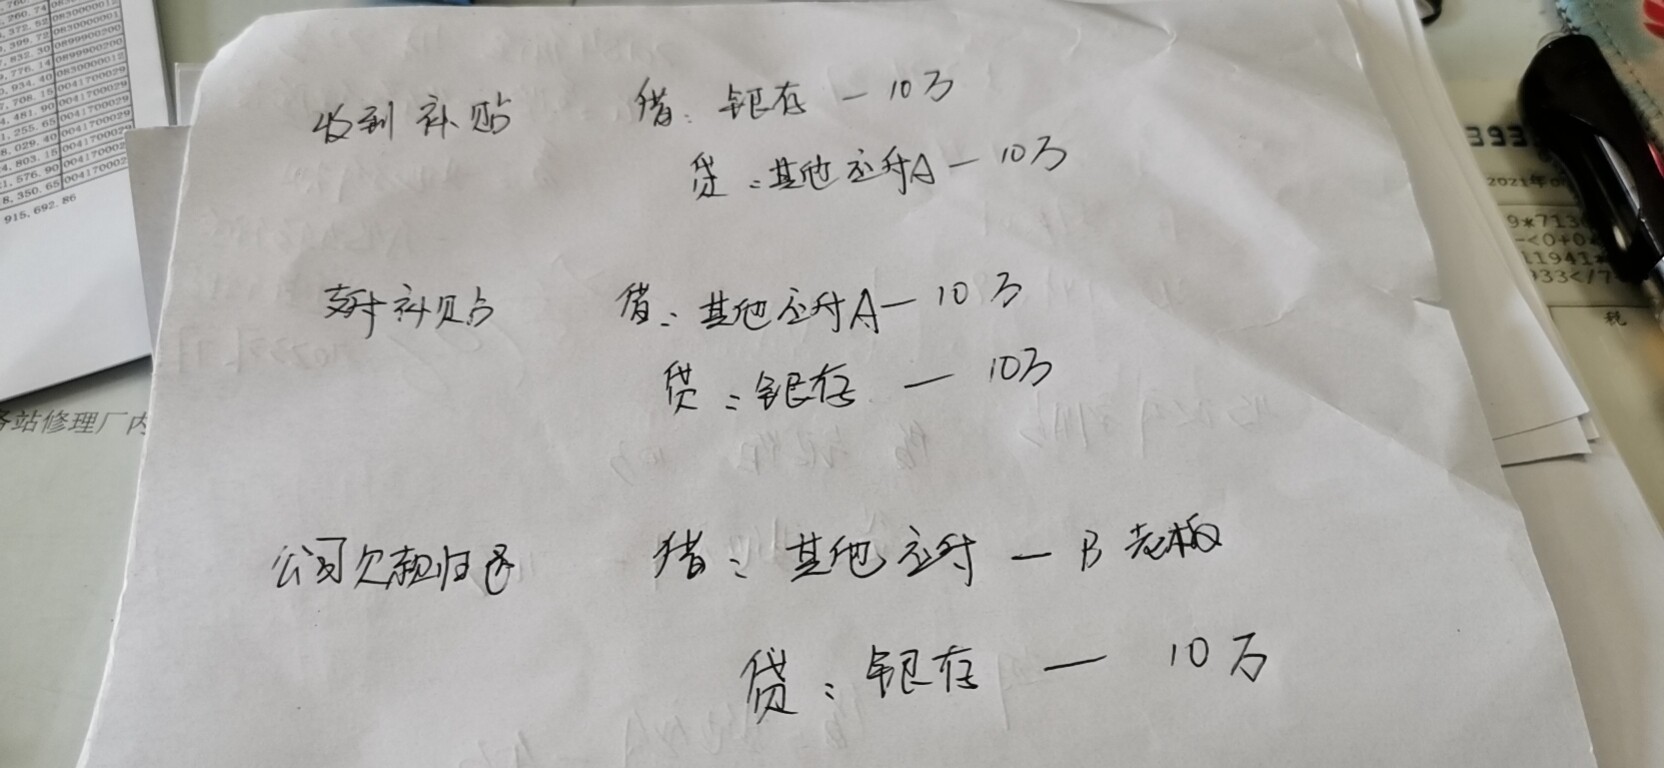 收到补贴 借：银存 — 10万
贷：其他应付A — 10万
支付补贴 借：其他应付A — 10万
贷：银存 — 10万
公司欠款归还 借：其他应付 — B老板
贷：银存 — 10万
372.52 0830000012
399.72 0899900200
832.30 0899900200
776.14 0830000012
934.40 0041700029
708.15 0041700029
481.90 0041700029
255.65 0041700029
029.40 0041700029
803.15 004170002
576.90 004170002
350.65 004170002
915,692.86
站修理厂内
393
2021年0
9*713
-<0+0
11941*
933</7
税